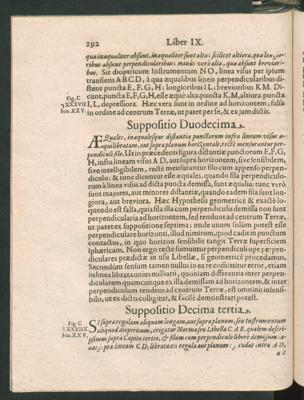 292 Liber IX.
qua inæqualiter absunt, inæqualiter sunt alta: scilicet altiora, quæ longioribus absunt perpendicularibus: minus verò alta, quæ absunt brevioribus.
Sit dioptricum Instrumentum NO, linea visus per ipsum
transiens ABCD, à qua æqualibus lineis perpendicularibus distent
puncta E, F, G, H: longioribus I, L: brevioribus K M. Dicunt,
puncta E, F, G, H, esse æquè alta: puncta K, M, altiora: puncta
I, L, depressiora. Hæc vera sunt in ordine ad horizontem; falsa
in ordine ad centrum Terræ, ut patet per se, & ex jam dictis.
Fig. C
XXXVII
Ico. XXV.
Suppositio Duodecima.
ÆQuales, inæqualesque distantiæ punctorum infra lineam visus
æquilibratam, aut supra planum horizontale, rectè mensurantur perpendiculi
filo. Ut in præcedenti figura distantiæ punctorum E, F, G,
H, infra lineam visus A D, aut supra horizontem, sive sensibilem,
sive intelligibilem, rectè mensurantur filo cum appenso perpendiculo:
& tunc dicuntur esse æquales, quando fila perpendiculorum
à linea visus ad dicta puncta demissa, sunt æqualia: tunc verò
sunt majores, aut minores distantiæ, quando eadem fila sunt longiora,
aut breviora. Hæc Hypothesis geometricè & exactè loquendo
est falsa, quia fila illa cum perpendiculis demissa non sunt
perpendicularia ad horizontem, sed tendunt ad centrum Terræ,
ut patet ex suppositione septima: unde unum solùm potest esse
perpendiculare horizonti, illud nimirum, quod cadit in punctum
contactus, in quo horizon sensibilis tangit Terræ superficiem
sphæricam. Non ergo rectè sumuntur perpendiculi ope perpendiculares
prædictæ in usu Libellæ, si geometricè procedamus.
Secundùm sensum tamen nullus in re constituitur error, etiam
in linea libratæ unius milliaris, quoniam differentia inter perpendicularem
quamcunque ex illa demissam ad horizontem, & inter
perpendicularem tendentem ad centrum Terræ, est omnino insensibilis,
ut ex dictis colligitur, & facilè demonstrari potest.
Suppositio Decima tertia.
Fig. C
XXXIIX
Ico. XXV.
SI supra regulam aliquam longam, aut supra planum, seu Instrumentum
aliquod dioptricum, erigatur Norma seu Libella C A B, qualem descripsimus
suprà Capite tertio, & filum cum perpendiculo liberè demissum